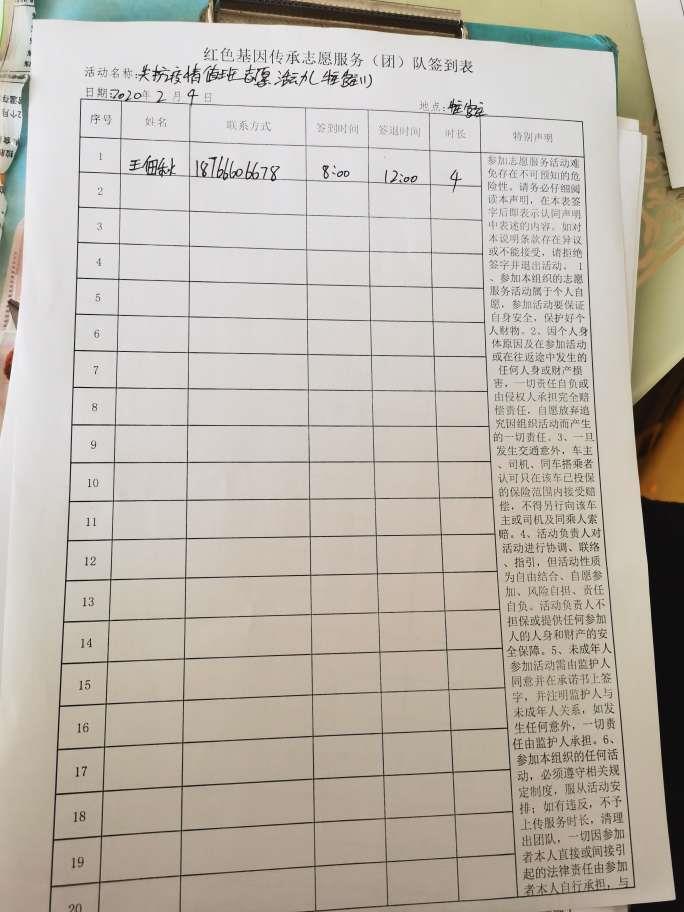 红色基因传承志愿服务（团）队签到表
活动名称: 抗疫情值班志愿活动
日期: 2020年 2 月 4 日
地点:
序号 姓名 联系方式 签到时间 签退时间 时长 特别声明
1 王 18766606678 8:00 12:00 4
2
3
4
5
6
7
8
9
10
11
12
13
14
15
16
17
18
19
20
参加志愿服务活动难
免存在不可预知的危
险性。请务必仔细阅
读本声明，在本表签
字后即表示认同声明
中表述的内容。如对
本说明条款存在异议
或不能接受，请拒绝
签字并退出活动。 1
、参加本组织的志愿
服务活动属于个人自
愿，参加活动要保证
自身安全，保护好个
人财物。2、因个人身
体原因及在参加活动
或在往返途中发生的
任何人身或财产损
害，一切责任自负或
由侵权人承担完全赔
偿责任，自愿放弃追
究因组织活动而产生
的一切责任。3、一旦
发生交通意外，车主
、司机、同车搭乘者
认可只在该车已投保
的保险范围内接受赔
偿，不得另行向该车
主或司机及同乘人索
赔。4、活动负责人对
活动进行协调、联络
、指引，但活动性质
为自由结合、自愿参
加、风险自担、责任
自负。活动负责人不
担保或提供任何参加
人的人身和财产的安
全保障。5、未成年人
参加活动需由监护人
同意并在承诺书上签
字，并注明监护人与
未成年人关系，如发
生任何意外，一切责
任由监护人承担。6、
参加本组织的任何活
动，必须遵守相关规
定制度，服从活动安
排；如有违反，不予
上传服务时长，清理
出团队，一切因参加
者本人直接或间接引
起的法律责任由参加
者本人自行承担，与